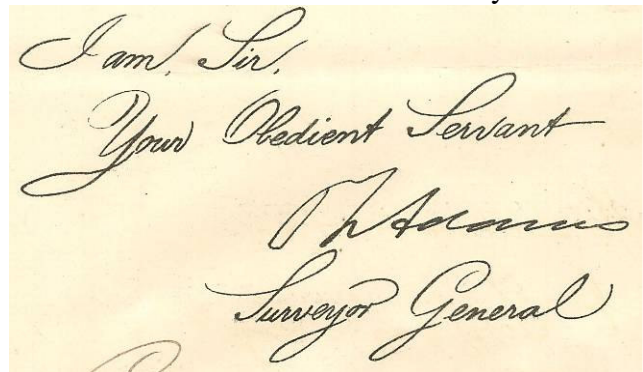 I am, Sir,
Your Obedient Servant
Adams
Surveyor General